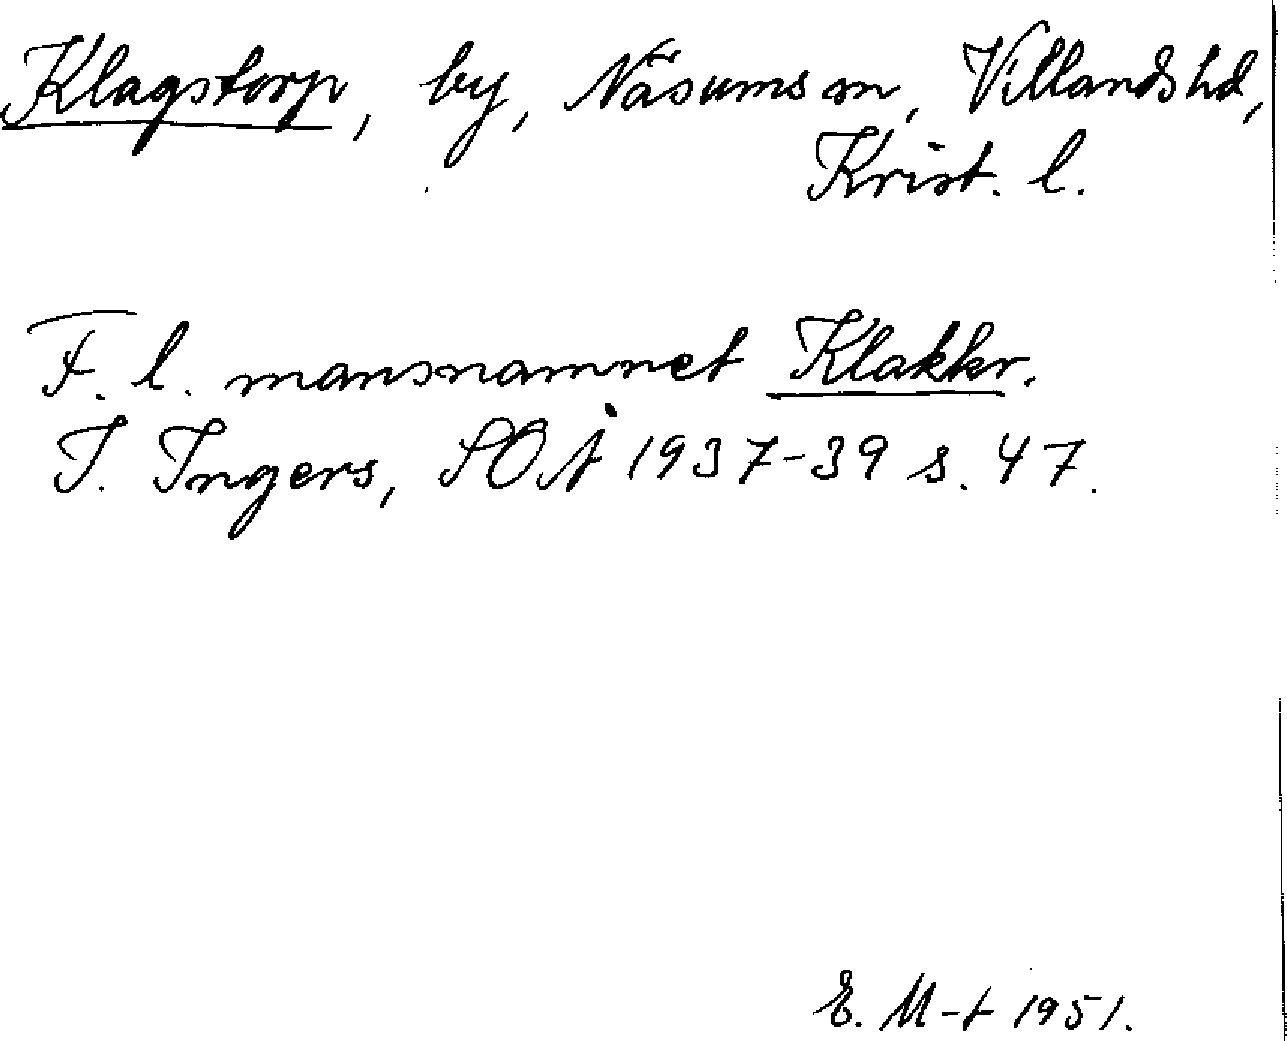 Klagstorp, by, Näsums sn, Villands hd,
Krist. l.
F. l. mansnamnet Klakkr.
I. Ingers, SOÅ 1937-39 s. 47.
E. M-t 1951.